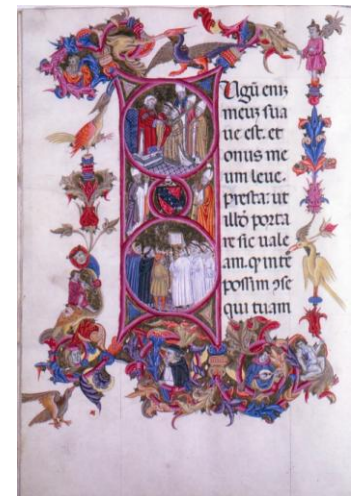 I Ugū eniz
meuz sua
ue est. et
onus me
um leue.
presta: ut
illð porta
re sic uale
am. q in te
possim ꝯse
qui tuam